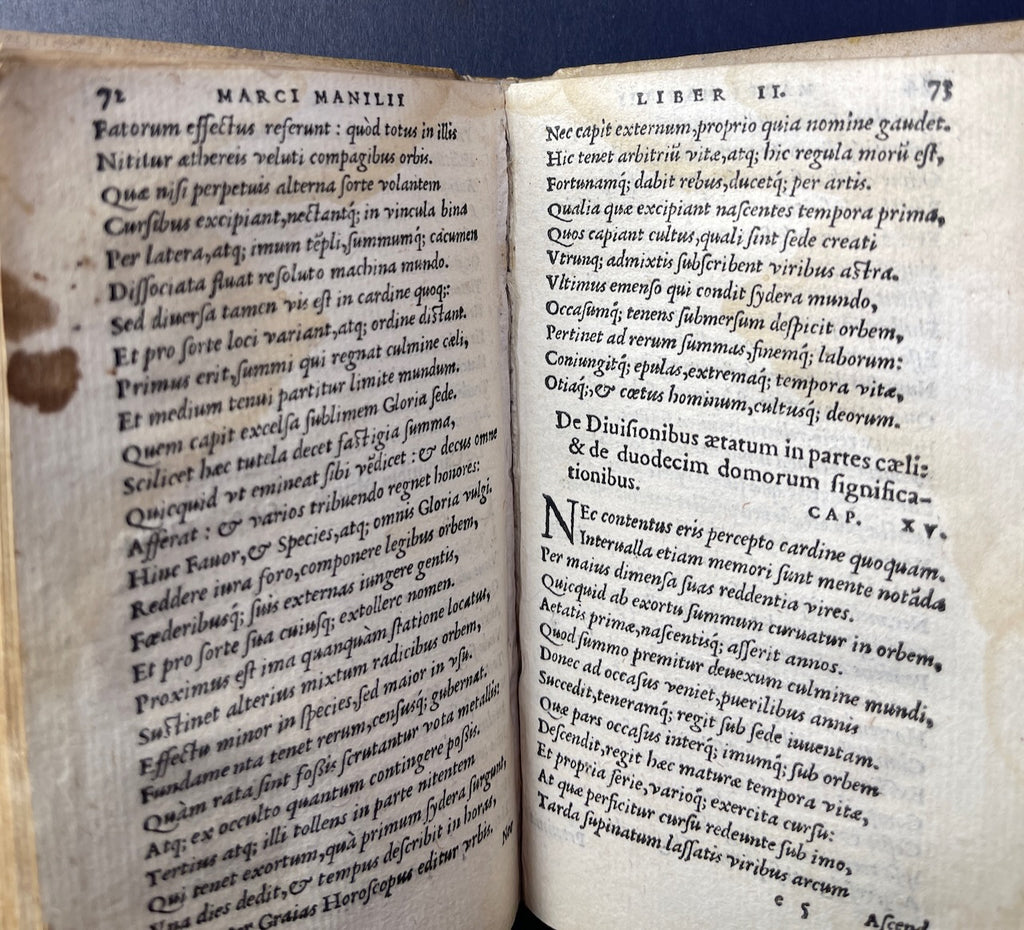 72 MARCI MANILII
Fatorum effectus referunt : quòd totus in illis
Nititur æthereis veluti compagibus orbis.
Quæ nisi perpetuis alterna sorte volantem
Cursibus excipiant,nectantq́; in vincula bina
Per latera,atq; imum tẽpli,summumq́; cacumen
Dissociata fluat resoluto machina mundo.
Sed diuersa tamen vis est in cardine quoq;:
Et pro sorte loci variant,atq; ordine distant.
Primus erit,summi qui regnat culmine cæli,
Et medium tenui partitur limite mundum.
Quem capit excelsa sublimem Gloria sede.
Scilicet hæc tutela decet fastigia summa,
Quicquid vt emineat sibi vẽdicet : & decus omne
Afferat : & varios tribuendo regnet honores:
Hinc Fauor,& Species,atq; omnis Gloria vulgi.
Reddere iura foro,componere legibus orbem,
Fœderibusq́; suis externas iungere gentis,
Et pro sorte sua cuiusq; extollere nomen.
Proximus est ima quanquàm statione locatus,
Sustinet alterius mixtum radicibus orbem,
Effectu minor in species,sed maior in vsu.
Fundamenta tenet rerum,censusq́; gubernat.
Quàm rata sint fossis scrutantur vota metallis:
Atq; ex occulto quantum contingere possis.
Tertius atq; illi tollens in parte nitentem
Qui tenet exortum,quà primum sydera surgunt,
Vna dies dedit,& tempus describit in horas,
Graias Horoscopus editur vrbis.
Nec
LIBER II. 73
Nec capit externum,proprio quia nomine gaudet.
Hic tenet arbitriũ vitæ,atq; hic regula morũ est,
Fortunamq́; dabit rebus,ducetq́; per artis.
Qualia quæ excipiant nascentes tempora prima,
Quos capiant cultus,quali sint sede creati
Vtrunq; admixtis subscribent viribus astra.
Vltimus emenso qui condit sydera mundo,
Occasumq́; tenens submersum despicit orbem,
Pertinet ad rerum summas,finemq́; laborum:
Coniungitq́; epulas,extremaq́; tempora vitæ,
Otiaq́;,& cœtus hominum,cultusq́; deorum.
De Diuisionibus ætatum in partes cæli:
& de duodecim domorum significa-
tionibus.
CAP. XV.
NEc contentus eris percepto cardine quoquam.
Interualla etiam memori sunt mente notãda
Per maius dimensa suas reddentia vires.
Quicquid ab exortu summum curuatur in orbem,
Aetatis primæ,nascentisq́; asserit annos.
Quod summo premitur deuexum culmine mundi,
Donec ad occasus veniet,puerilibus annis
Succedit,teneramq́; regit sub sede iuuentam.
Quæ pars occasus interq́; imumq́; sub orbem
Descendit,regit hæc maturæ tempora vitæ,
Et propria serie,varioq́; exercita cursu:
At quæ perficitur cursu redeunte sub imo,
Tarda supinatum lassatis viribus arcum
e 5 Ascend